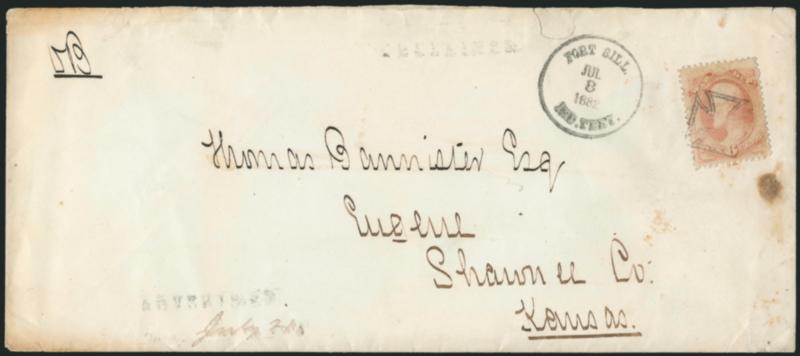 FORT SILL.
JUL
8
1882
IND. TERY.
Thomas Bannister Esq
Eugene
Shawnee Co.
Kansas.
ADVERTISED
July